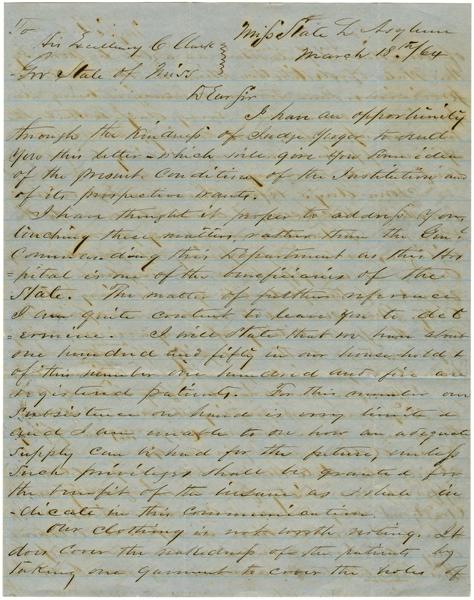 Miss State L Asylum
March 18th/64
To
His Excellency C Clark
Gov State of Miss
Dear Sir
I have an opportunity
through the kindness of Judge Yerger to send
you this letter - which will give you some idea
of the present condition of the Institution and
of its prospective wants.
I have thought it proper to address you,
touching these matters, rather than the Genl
Commanding this Department as this Hos
=pital is one of the beneficiaries of the
State. The matter of further reference
I am quite content to leave you to det
=ermine. I will state that we have about
one hundred and fifty in our household
of this number one hundred and five are
registered patients. For this number our
Subsistence on hand is very limited
and I am unable to see how an adequate
Supply can be had for the future, unless
Such privileges should be granted for
the benefit of the insane as I shall in
-dicate in this communication.
Our clothing is not worth noting. It
does cover the nakedness of the patients by
taking one garment to cover the holes of